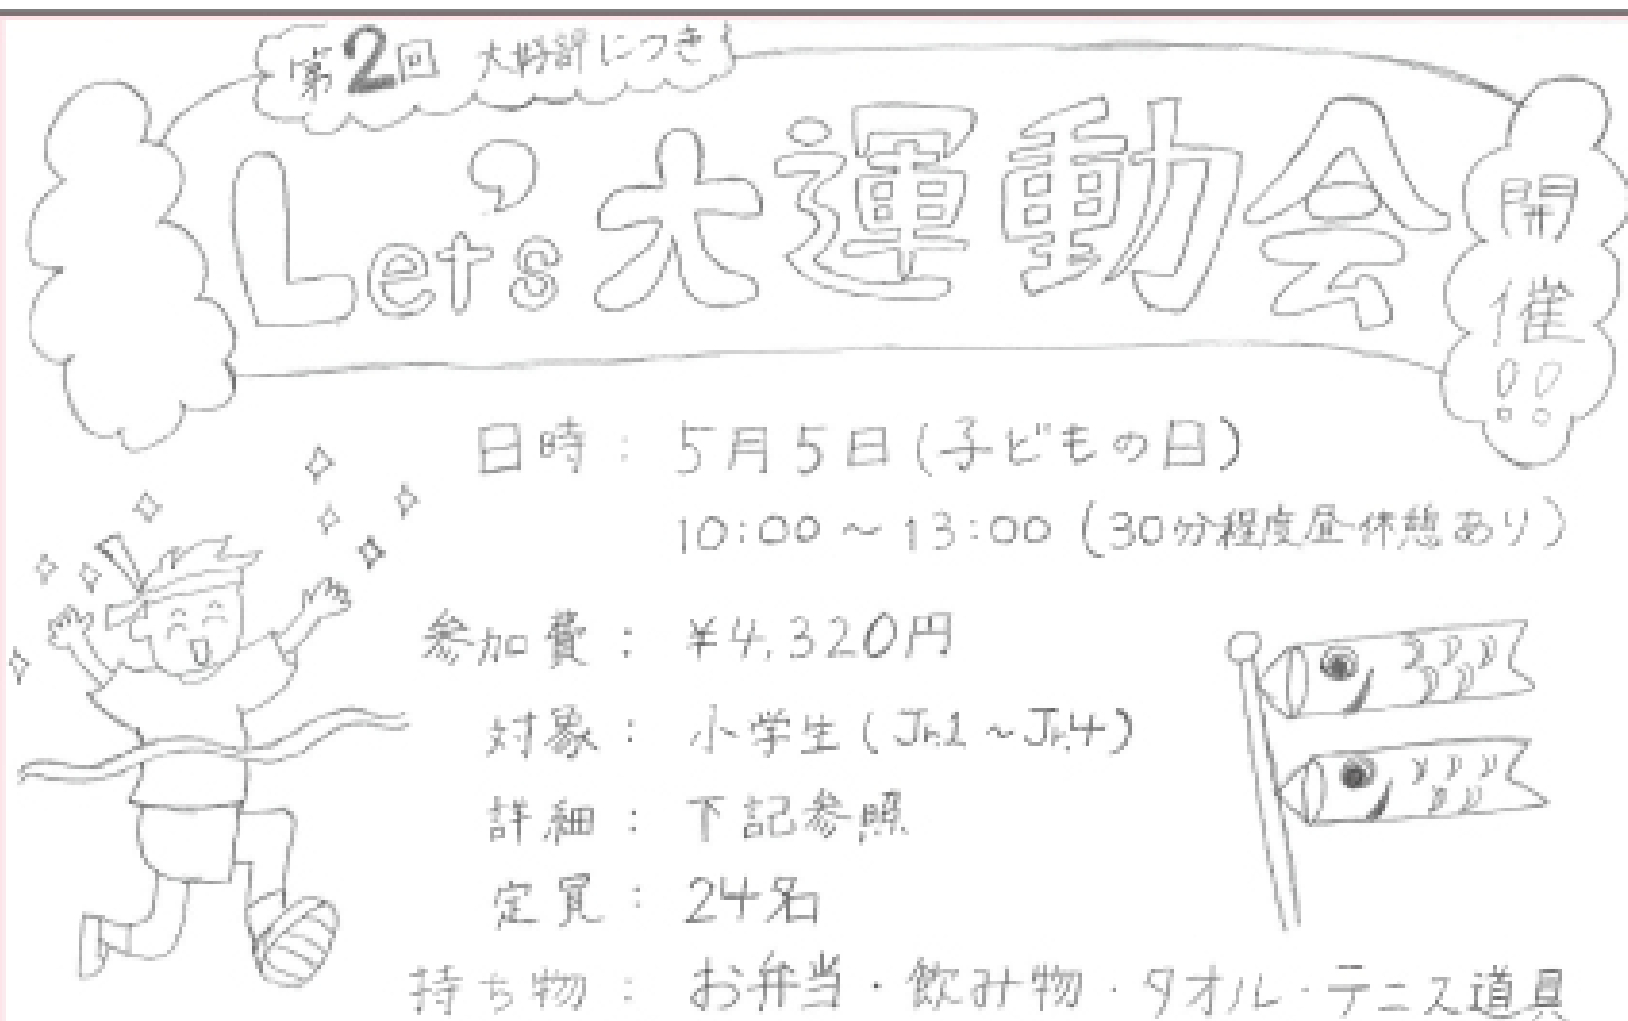 第2回 大好評につき
Let's大運動会
開催!!
日時：5月5日(子どもの日)
10:00～13:00 (30分程度昼休憩あり)
参加費：¥4,320円
対象：小学生(Jr.1～Jr.4)
詳細：下記参照
定員：24名
持ち物：お弁当・飲み物・タオル・テニス道具